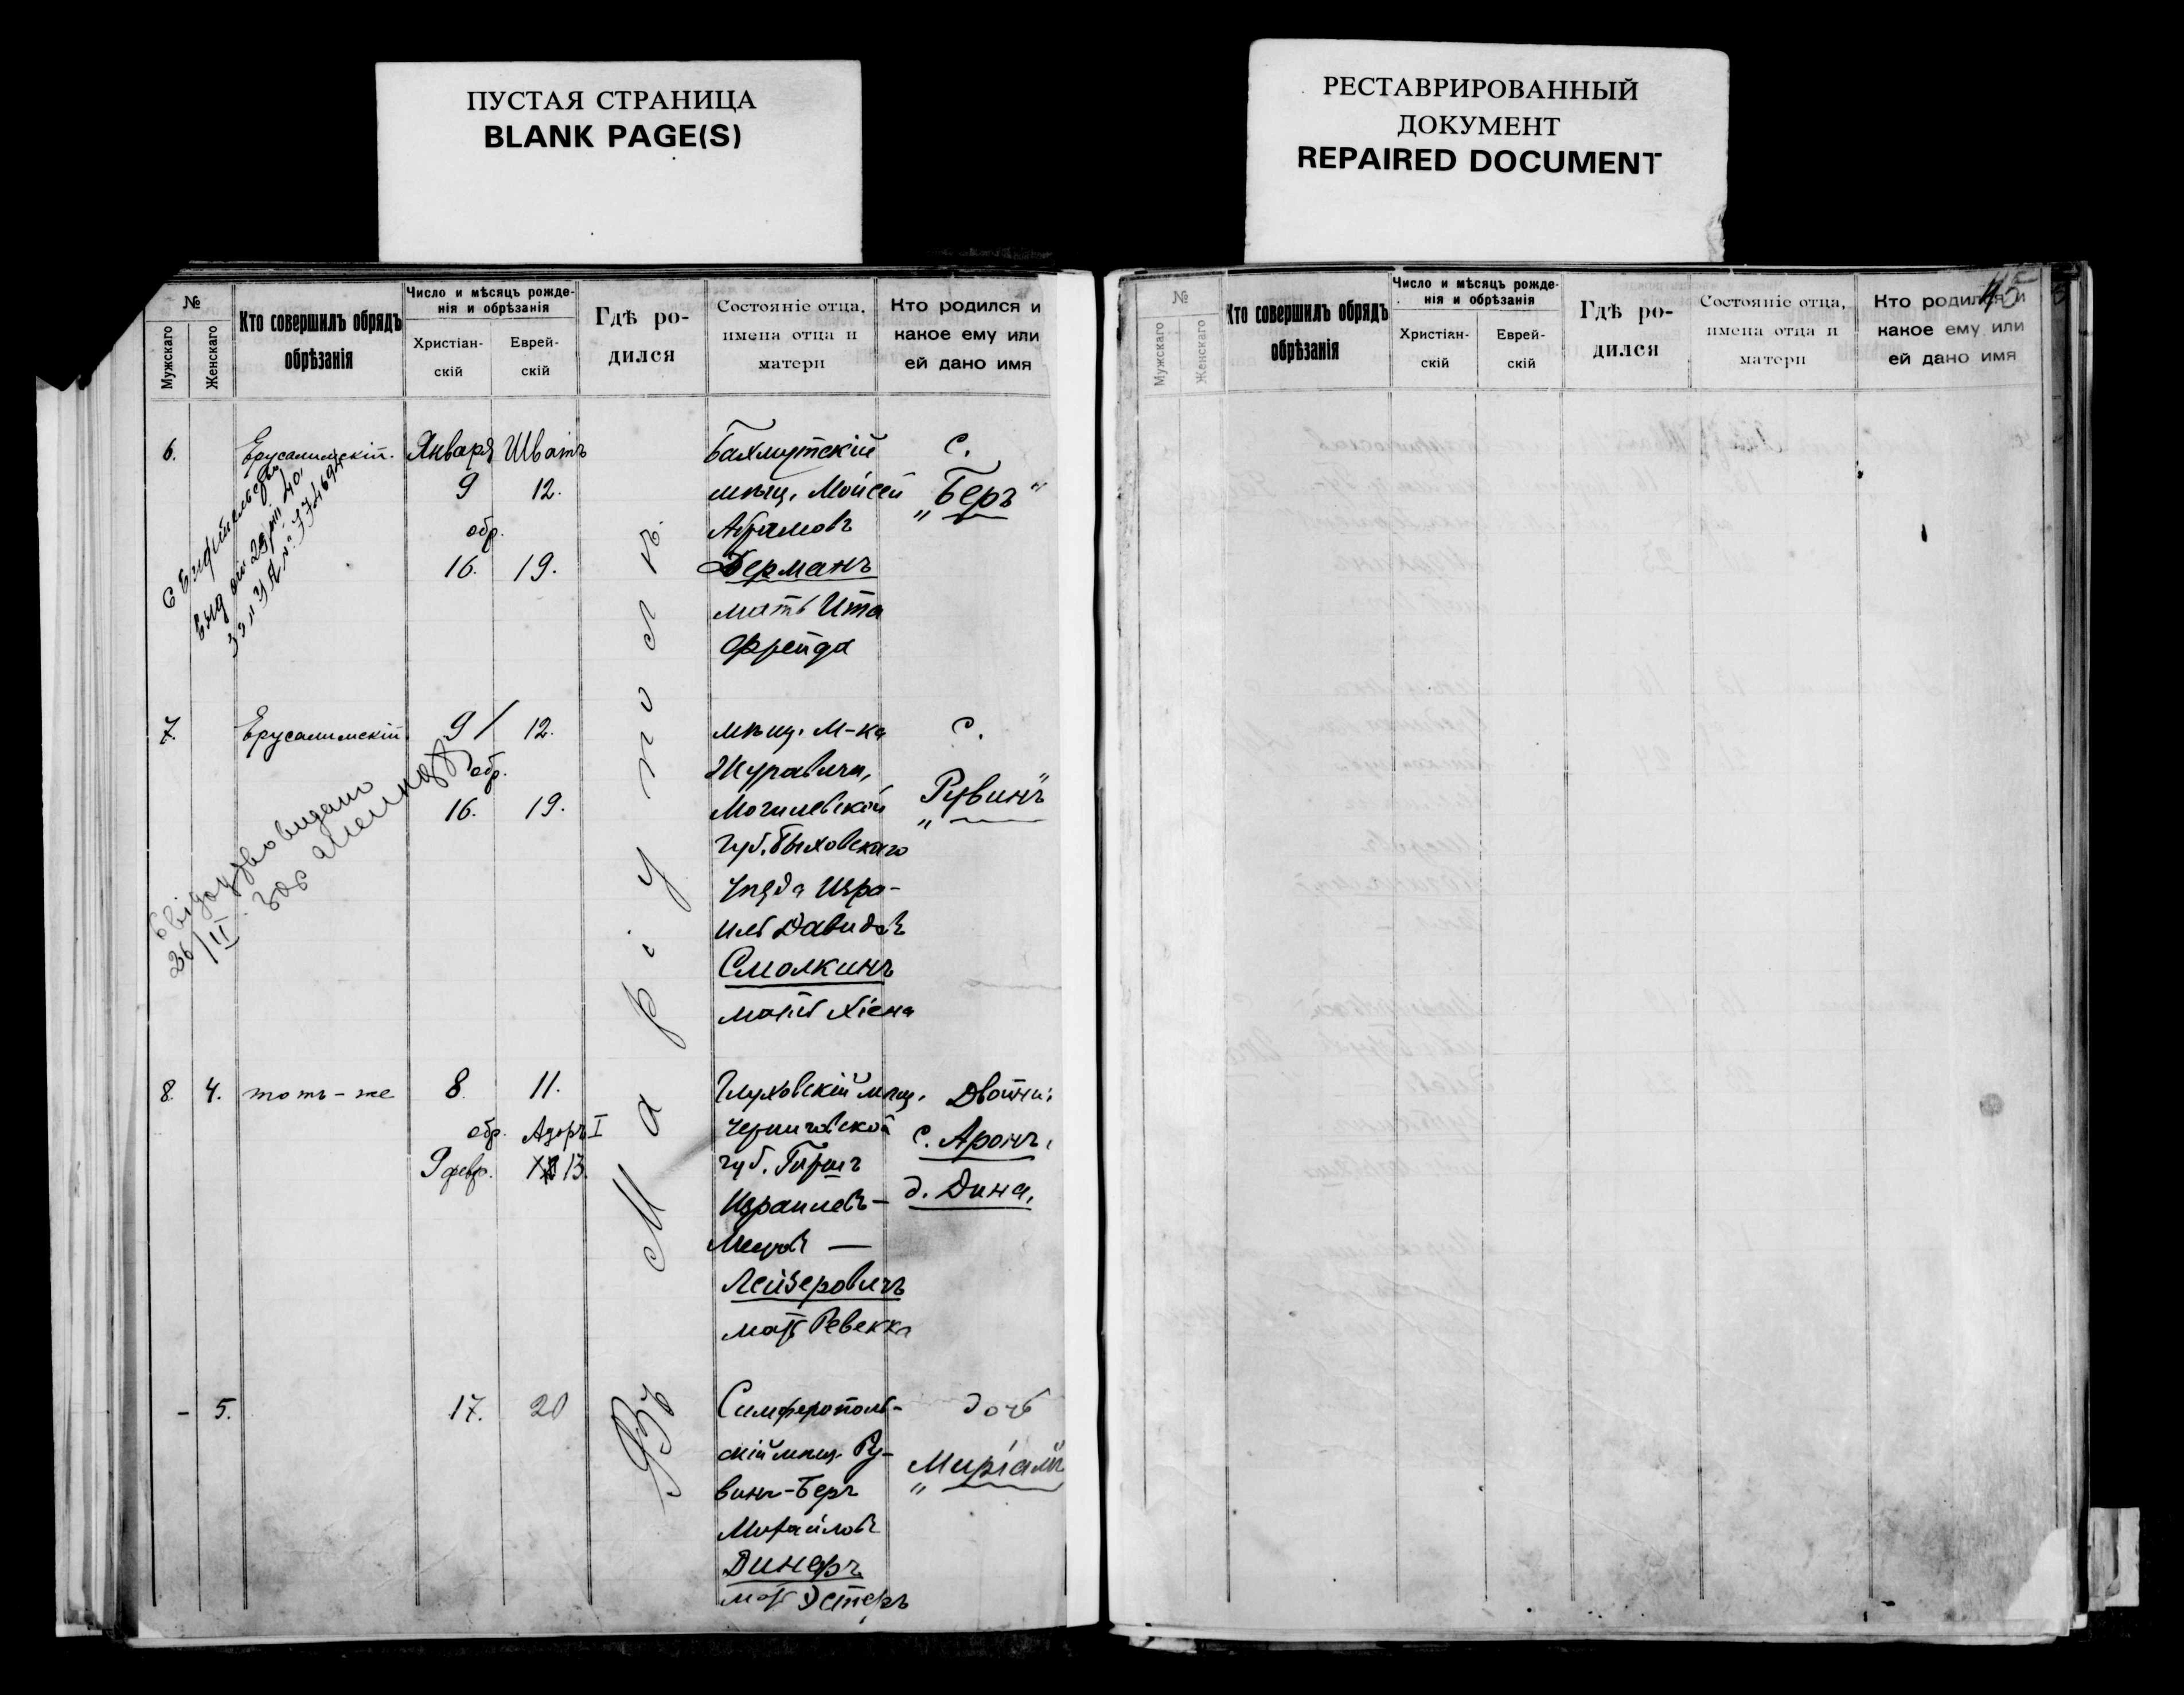 ПУСТАЯ СТРАНИЦА
BLANK PAGE(S)
РЕСТАВРИРОВАННЫЙ
ДОКУМЕНТ
REPAIRED DOCUMENT
№
Мужскаго
Женскаго
Кто совершилъ обрядъ
обрѣзанія
Число и мѣсяцъ рожде-
нія и обрѣзанія
Христіан-
скій
Еврей-
скій
Гдѣ ро-
дился
Состояніе отца,
имена отца и
матери
Кто родился и
какое ему или
ей дано имя
6.
Ерусалимскій.
Января
Шватъ
9
12.
обр.
16.
19.
Бахмутскій
мѣщ. Мойсей
Абрамовъ
Дерманъ
мать Ита
Фрейда
С.
„Беръ“
7.
Ерусалимскій
9
12.
обр.
16.
19.
мѣщ. М-ка
Журавича,
Могилевской
губ. Быховскаго
уѣзда Изра-
иль Давидовъ
Смолкинъ
мать Хіена
С.
„Рувинъ“
26/II
8.
4.
тотъ-же
8.
11.
обр.
Адоръ I
9 февр.
13.
Глуховскій мѣщ.
Черниговской
губ. Гиршъ
Израилевъ-
Мееровъ —
Лейзеровичъ
мать Ревекка
Двойни:
с. Аронъ,
д. Дина,
-
5.
17.
20
Симферополь-
скій мѣщ. Ру-
винъ-Беръ
Михайловъ
Динеръ
мать Эстеръ
дочь
„Миріамъ“
Въ Маріуполѣ.
№
Мужскаго
Женскаго
Кто совершилъ обрядъ
обрѣзанія
Число и мѣсяцъ рожде-
нія и обрѣзанія
Христіан-
скій
Еврей-
скій
Гдѣ ро-
дился
Состояніе отца,
имена отца и
матери
Кто родился и
какое ему или
ей дано имя
45